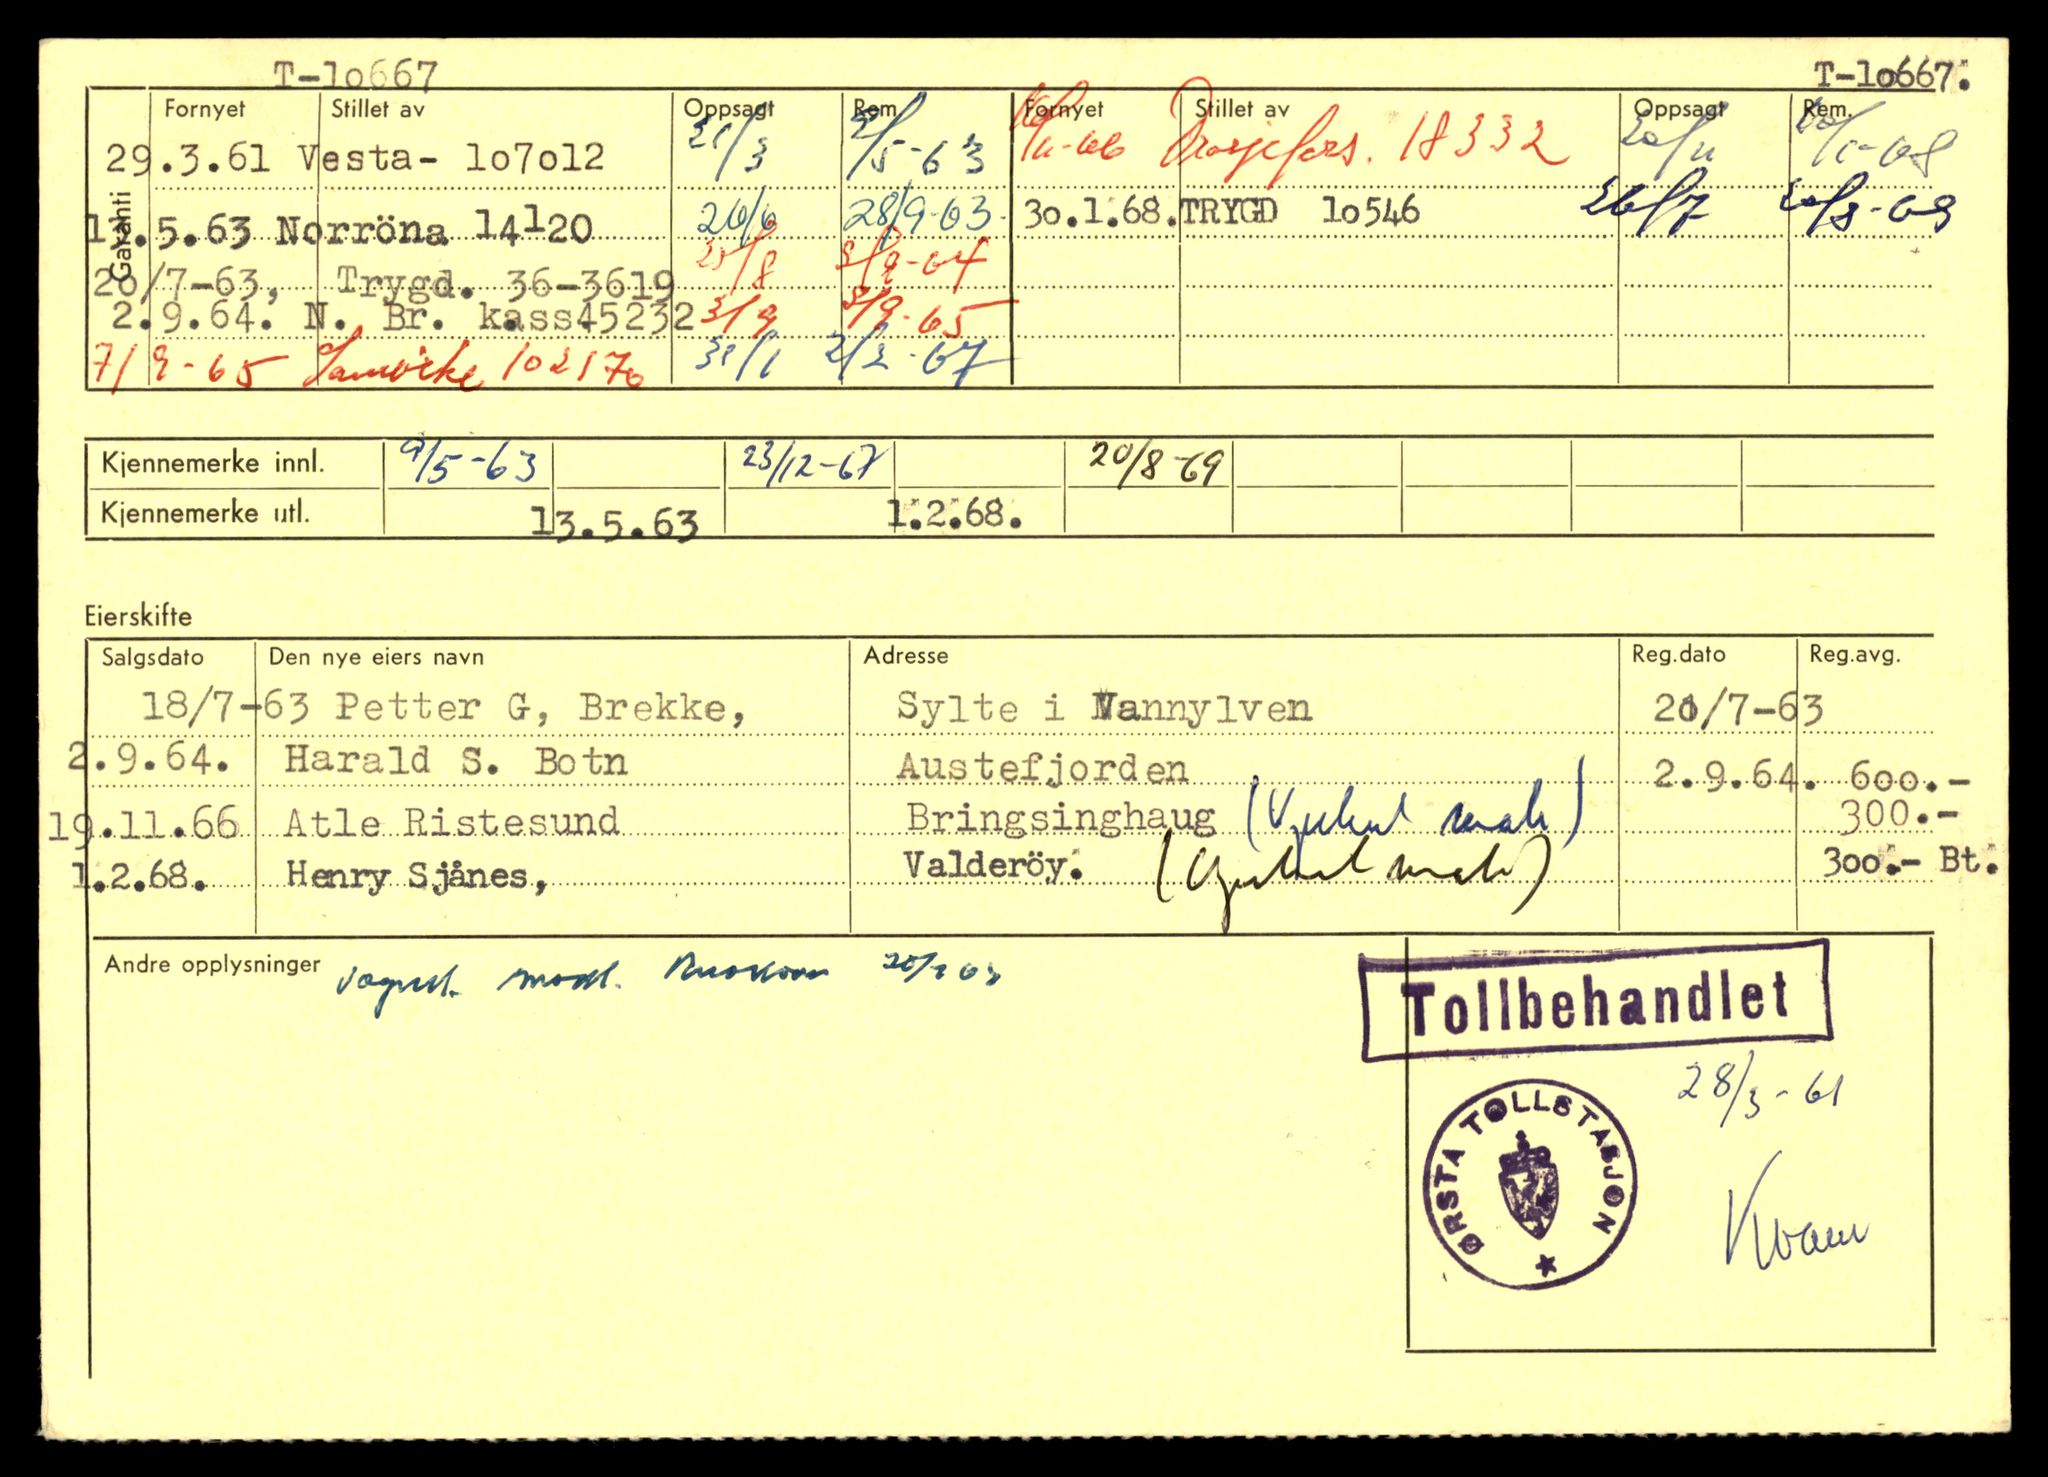 T-1o667 T-1o667.
Fornyet Stillet av Oppsagt Rem. Fornyet Stillet av Oppsagt Rem.
Garanti
29.3.61 Vesta- 1o7o12 31/3 2/5-63 18332
13.5.63 Norröna 14120 26/6 28/9-63. 3o.1.68. TRYGD 1o546 26/7
20/7-63, Trygd. 36-3619 25/8 3/9-64
2.9.64. N. Br. kass45232 3/9 3/9-65
7/9-65 Samvirke 102170 31/1 2/2-67
Kjennemerke innl. 9/5-63 23/12-67 20/8-69
Kjennemerke utl. 13.5.63 1.2.68.
Eierskifte
Salgsdato Den nye eiers navn Adresse Reg.dato Reg.avg.
18/7-63 Petter G, Brekke, Sylte i Vannylven 20/7-63
2.9.64. Harald S. Botn Austefjorden 2.9.64. 6oo.-
19.11.66 Atle Ristesund Bringsinghaug 3oo.-
1.2.68. Henry Sjånes, Valderöy. 3oo.- Bt.
Andre opplysninger
Tollbehandlet
28/3-61
ØRSTA TOLLSTASJON
Kvam